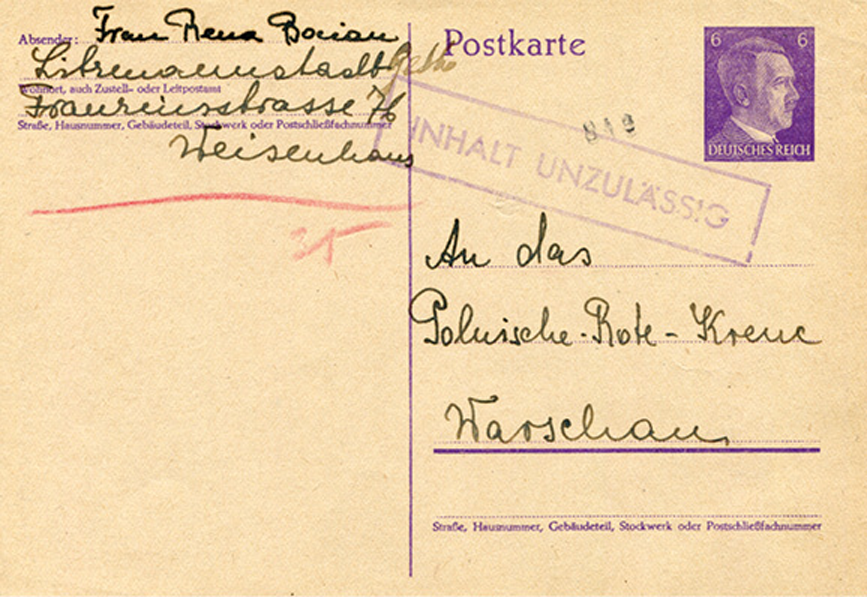 Absender: Frau Rena Bocian
Litzmannstadt Getto
Wohnort, auch Zustell- oder Leitpostamt
76
Straße, Hausnummer, Gebäudeteil, Stockwerk oder Postschließfachnummer
Weisenhaus
35
Postkarte
6 6
DEUTSCHES REICH
819
INHALT UNZULÄSSIG
An das
Polnische-Rote-Kreuc
Warschau
Straße, Hausnummer, Gebäudeteil, Stockwerk oder Postschließfachnummer